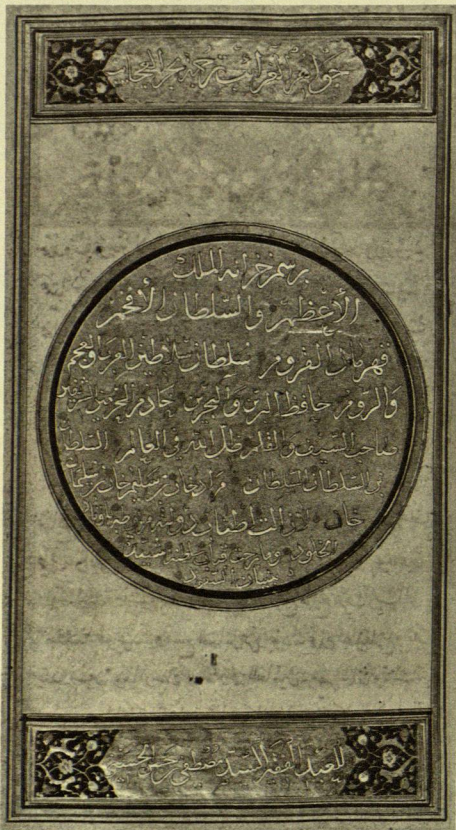 جواهر الغرائب ترجمة بحر العجائب
برسم خزانة الملك
الأعظم والسلطان الأفخم
قهرمان القروم سلطان سلاطين العرب والعجم
والروم حافظ البرين والبحرين خادم الحرمين الشريفين
صاحب السيف والقلم ظل الله في العالم السلطان
بن السلطان السلطان مراد خان بن سليم خان بن سليمان
خان لا زالت اطناب دولته
الخلود وما برحت
بنيان السعود
للعبد الفقير السيد مصطفى بن حسن الحسيني